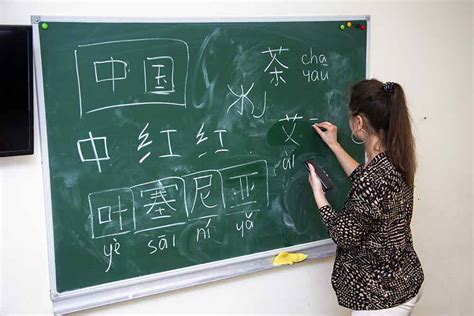 中国
茶 cha
чай
水
中 红 红 艾
ài
叶 塞 尼 亚
yè sāi ní yǎ